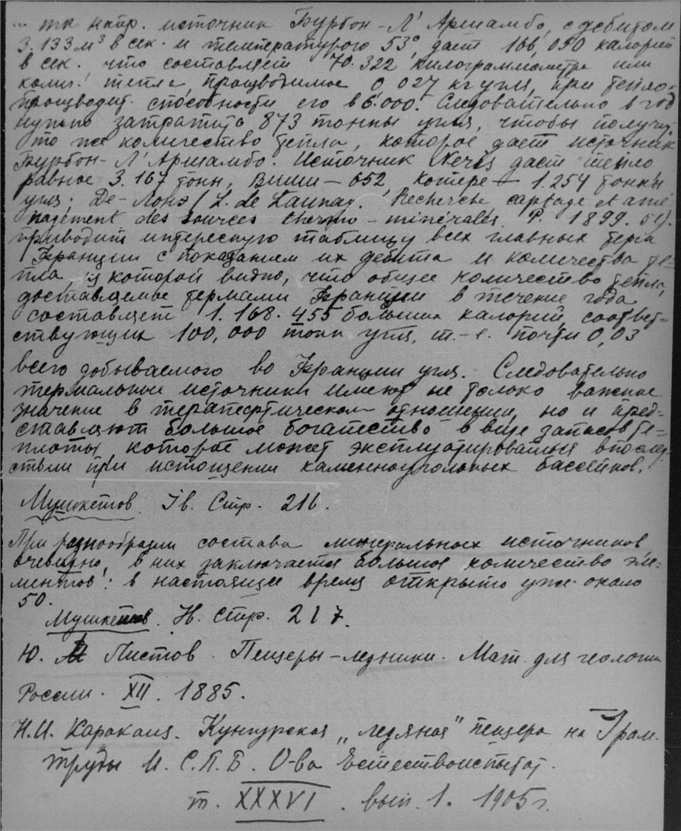 ... ты напр. источник Бурбон-Л'Аршамбо, с дебитом
3.133 м³ в сек. и температурою 53°, дает 166,050 калорий
в сек. что составляет 70.322 килограммометра или
колич. тепла, производимое 0,027 кг угля, при тепло-
производит. способности его в 6.000. Следовательно в год
нужно затратить 873 тонны угля, чтобы получить
то же количество тепла, которое дает источник
Бурбон-Л'Аршамбо. Источник Neris дает тепло
равное 3.167 тонн, Виши — 652, Котере — 1.254 тонны
угля; Де-Лонэ / L. de Launay. Recherche captage et amé-
nagement des sources thermo-minérales. P. 1899.
приводит интересную таблицу всех главных терм
Франции с показанием их дебита и количества те-
пла из которой видно, что общее количество тепла,
доставляемое термами Франции в течение года
составляет 1.168.455 больших калорий соответ-
ствующих 100,000 тонн угля, т.-е. почти 0,03
всего добываемого во Франции угля. Следовательно
термальные источники имеют не только важное
значение в терапевтическом отношении, но и пред-
ставляют большое богатство в виде запасов те-
плоты, которое может эксплуатироваться впослед-
ствии при истощении каменноугольных бассейнов.
Мушкетов. Стр. 216.
При разнообразии состава минеральных источников
очевидно, в них заключается большое количество эле-
ментов: в настоящее время открыто уже около
50.
Мушкетов. Стр. 217.
Ю. Листов Пещеры-ледники. Мат. для геологии
России. XII. 1885.
Н.И. Каракаш. Кунгурская „ледяная" пещера на Урал.
труды И. С.П.Б. О-ва Естествоиспытат.
т. XXXVI. вып. 1. 1905 г.